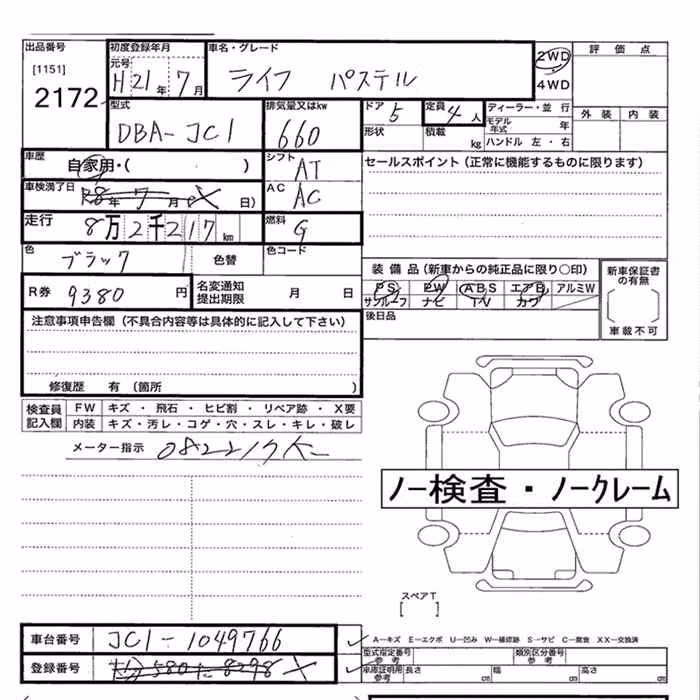 出品番号 初度登録年月 車名・グレード 2WD 評価点
[1151] 元号 H21年7月 ライフ パステル 4WD
2172 型式 排気量又はkw ドア 5 定員 4人 ディーラー・並行 外装 内装
DBA-JC1 660 形状 積載 kg モデル年式 年
ハンドル 左・右
車歴 自家用・( ) シフト AT セールスポイント(正常に機能するものに限ります)
車検満了日 R8年7月 日) AC AC
走行 8万2千217km 燃料 G
色 ブラック 色替 色コード
装備品(新車からの純正品に限り○印) 新車保証書の有無
R券 9380円 名変通知提出期限 月 日 PS PW ABS エアB アルミW
サンルーフ ナビ TV カワ
注意事項申告欄(不具合内容等は具体的に記入して下さい) 後日品 車載不可
修復歴 有(箇所 )
検査員記入欄 FW キズ・飛石・ヒビ割・リペア跡・X要
内装 キズ・汚レ・コゲ・穴・スレ・キレ・破レ
メーター指示 082217K
ノー検査・ノークレーム
スペアT
[ ]
車台番号 JC1-1049766 A−キズ E−エクボ U−凹み W−補修跡 S−サビ C−腐食 XX−交換済
型式指定番号 参考 類別区分番号 参考
登録番号 580 8298 車庫証明用 参考 長さ cm 幅 cm 高さ cm